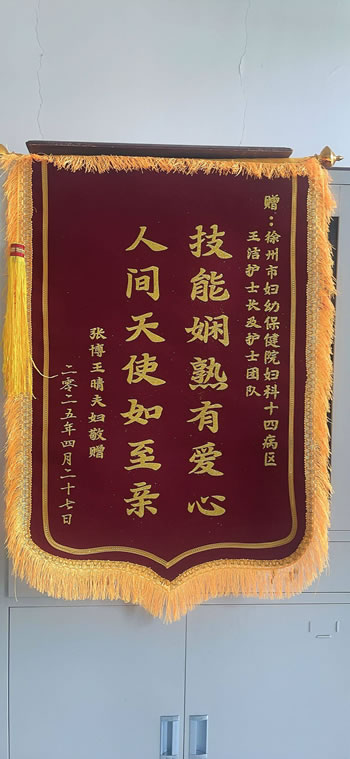 赠：徐州市妇幼保健院妇科十四病区
王洁护士长及护士团队
技能娴熟有爱心
人间天使如至亲
张博王晴夫妇敬赠
二零二五年四月二十七日